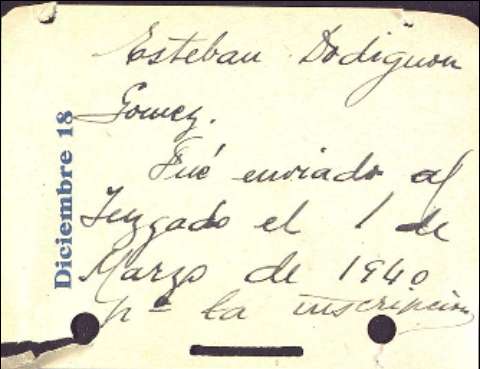 Esteban Dodignon
Gomez.
Fué enviado al
Juzgado el 1 de
Marzo de 1940
pª la inscripcion
Diciembre 18